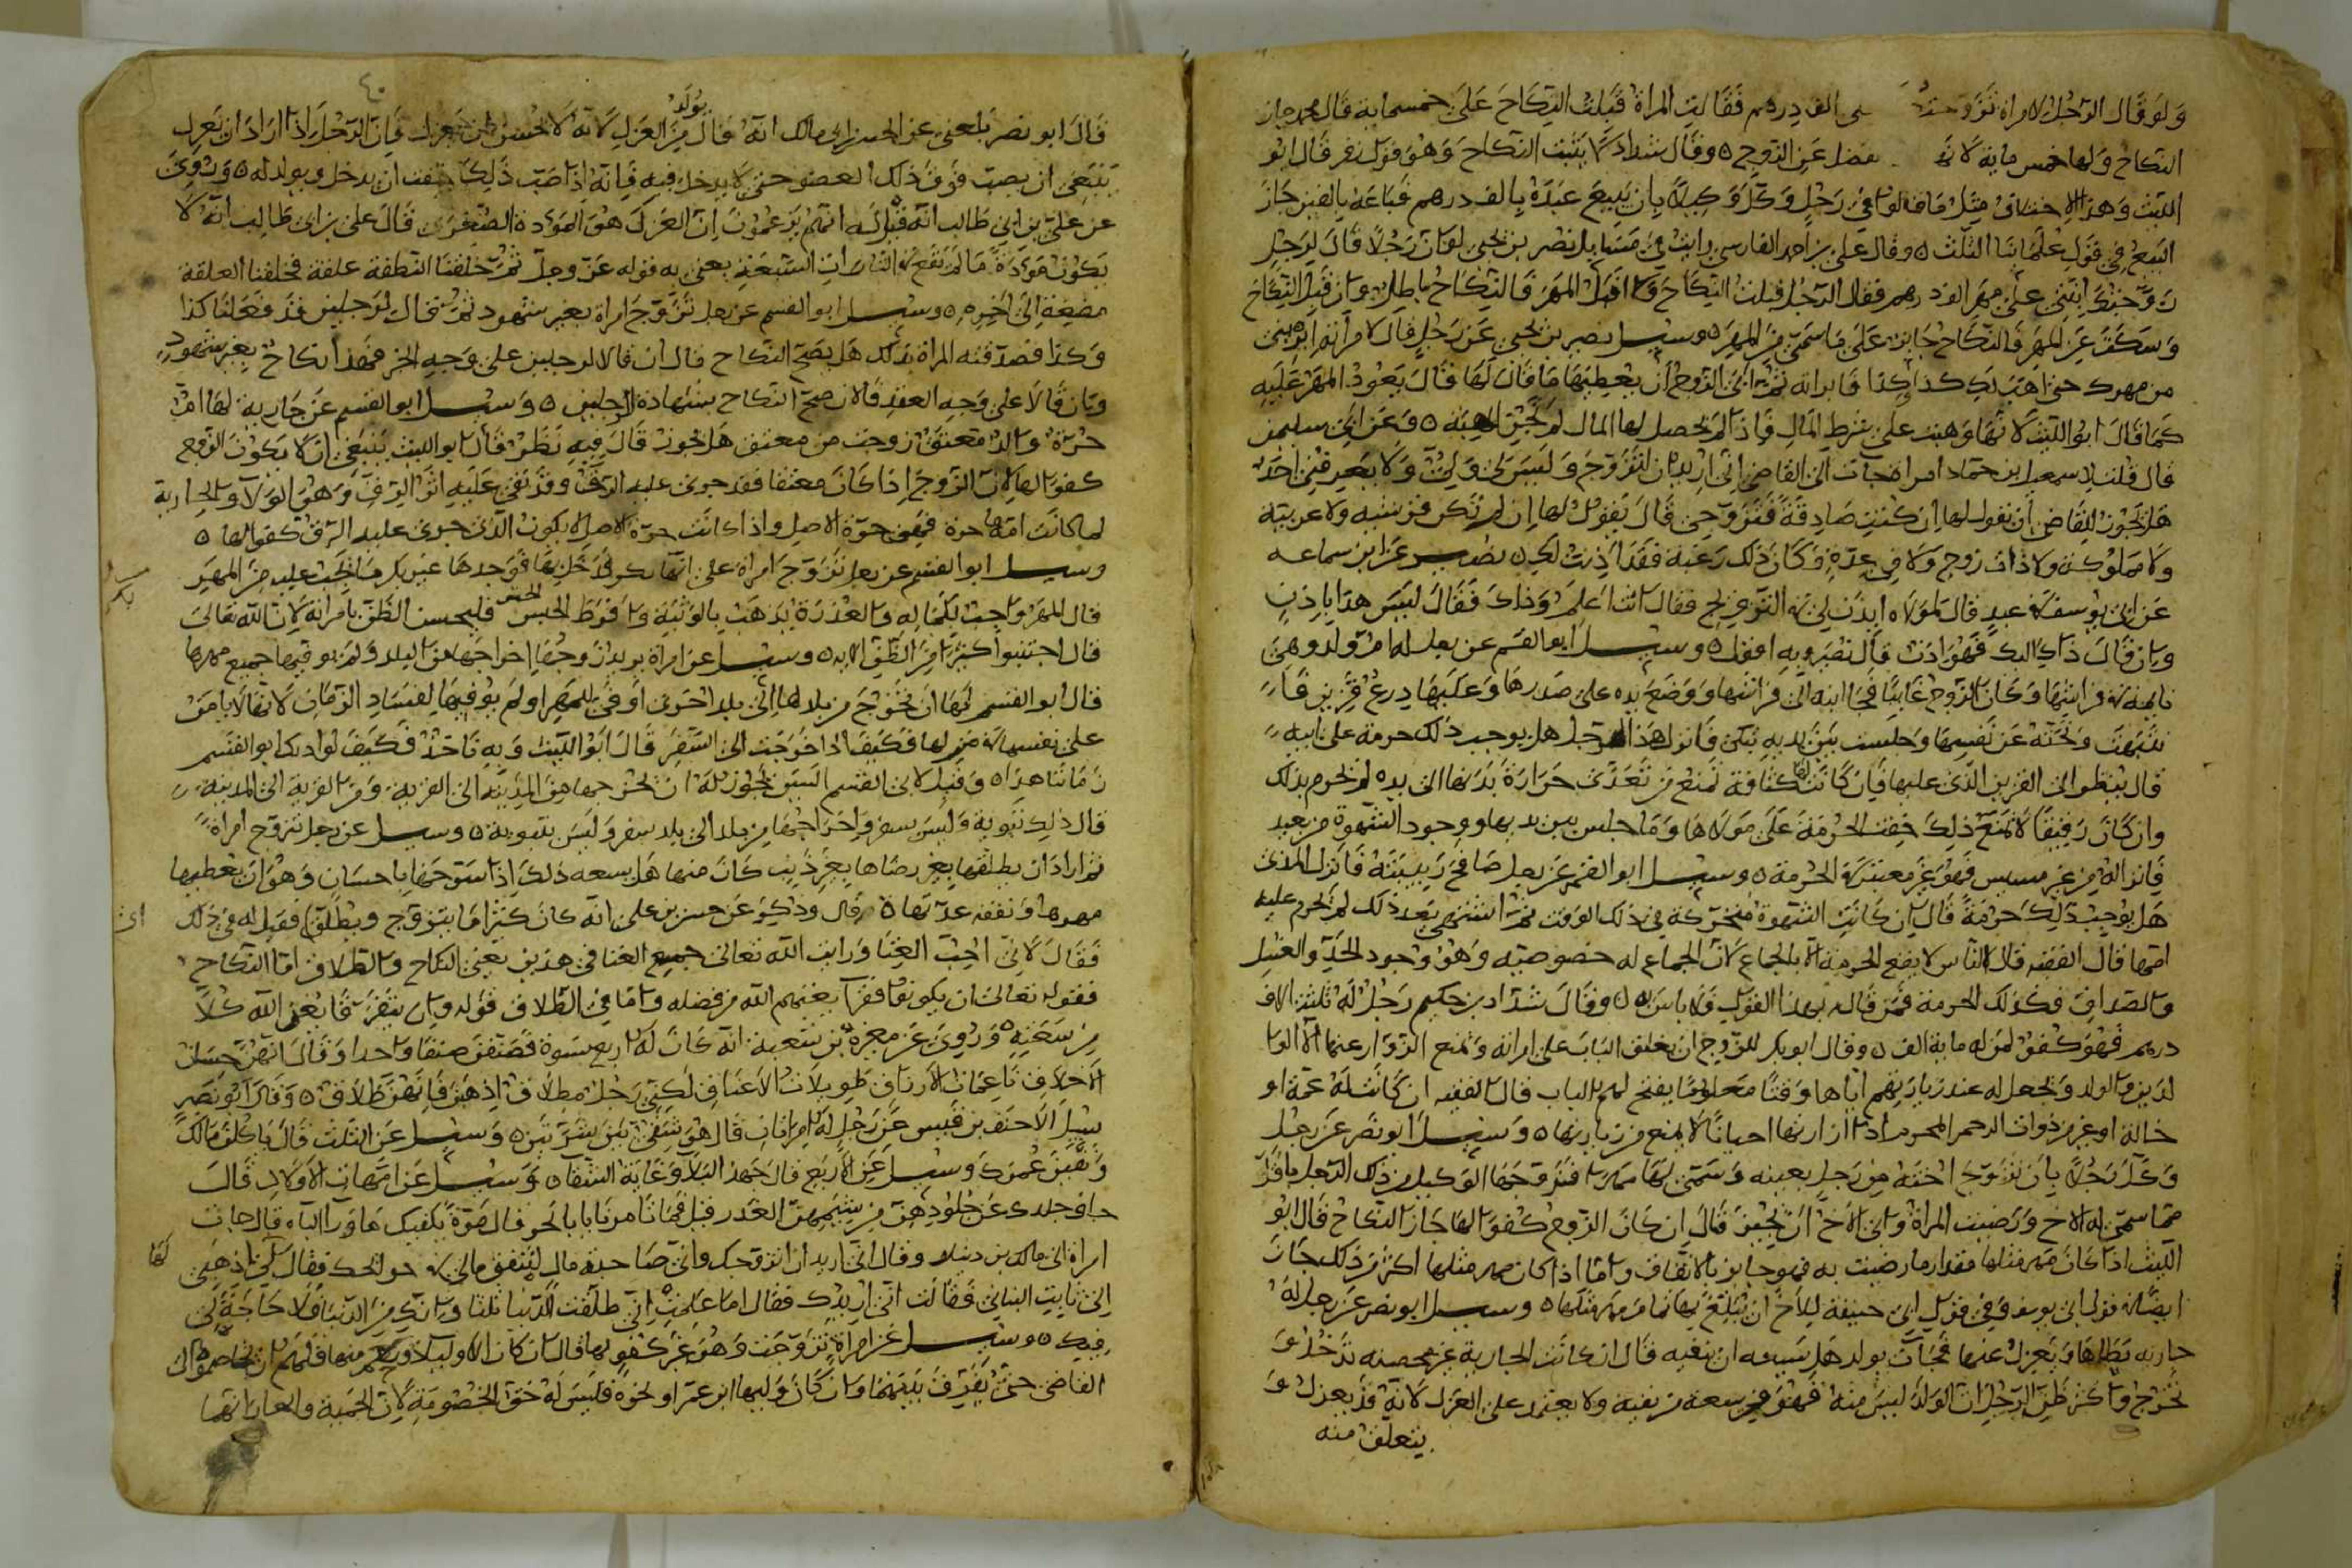 ولو قال الرجل لامراة تزوجتك على الف درهم فقالت المراة قبلت النكاح على خمسماية قال محمد جاز
النكاح ولها خمس ماية لانه فضل عن الزوج ٥ وقال شداد لا يثبت النكاح وهو قول زفر قال ابو
الليث وهذا الاختلاف مثل ما قالوا في رجل وكل وكيلا بان يبيع عبده بالف درهم فباعه بالفين جاز
البيع في قول علمائنا الثلث ٥ وقال علي بن احمد الفارسي رايت في مسايل نصر بن يحيى لو ان رجلا قال لرجل
زوجتك ابنتي على مهر الف درهم فقال الرجل قبلت النكاح ولا اقبل المهر فالنكاح باطل وان قبل النكاح
وسكت عن المهر فالنكاح جايز على ما سمى من المهر ٥ وسيل نصير بن يحيى عن رجل قال لامراته ابريني
من مهرك حتى اهب لك كذا وكذا فابراته ثم ابى الزوج ان يعطيها ما قال لها قال يعود المهر عليه
كما قال ابو الليث لانها وهبت على شرط المال فاذا لم يحصل لها المال لم تجز الهبة ٥ وعن ابي سليمن
قال قلت لاسمعيل بن حماد امراة جآت الى القاضي اني اريد ان اتزوج وليس لي ولي ولا يعرفني احد
هل يجوز للقاضي ان يقول لها ان كنت صادقة فتزوجي قال يقول لها ان لم تكن قرشية ولا عربية
ولا مملوكة ولا ذات زوج ولا في عدة وكان ذلك رغبة فقد اذنت لك ٥ نصير عن ابن سماعه
عن ابي يوسف في عبد قال لمولاه ايذن لي في التزويج فقال انت اعلم وذاك فقال ليس هذا باذن
وان قال ذاك اليك فهو اذن قال نصير وبه اقول ٥ وسيل ابو القسم عن رجل له ام ولد وهي
نايمة في فراشها وكان الزوج غايبا فجا ابنه الى فراشها ووضع يده على صدرها وعليها درع قز بن فارـ
فتنبهت ونحته عن نفسها وجلست بين يديه تبكي فانزل هذا الرجل هل يوجب ذلك حرمة على ابيه
قال ينظر الى القز بن الذي عليها فان كانت لها كثافة تمنع من تعدي حرارة بدنها الى يده لم تحرم بذلك
وان كان رقيقا لا تمنع ذلك خفت الحرمة على مولاها وما جلس بين يديها ووجود الشهوة من بعد
فانزاله من غير مسيس فهو غير معتبر في الحرمة ٥ وسيل ابو القسم عن رجل صافح ربيبته فانزل المذي
هل يوجب ذلك حرمة قال ان كانت الشهوة متحركة في ذلك الوقت ثم اشتهى بعد ذلك لم تحرم عليه
امها قال الفقيه قال الناس لا يقع الحرمة الا بالجماع لان الجماع له خصوصية وهو وجود الحد والغسل
والصداق فكذلك الحرمة فمن قال بهذا القول فلا باس به ٥ وقال شداد بن حكيم رجل له ثلثة الاف
درهم فهو كفو لمن له ماية الف ٥ وقال ابو بكر للزوج ان يغلق الباب على امراته ويمنع الزوار عنها الا الوا
لدين والولد ويجعل له عند زيارتهم اياها وقتا معلوما يفتح لهم الباب قال الفقيه ان كانت له عمة او
خالة او غير من ذوات الرحم المحرم اذا ارادوا زيارتها احيانا لا يمنع من زيارتها ٥ وسيل ابو نصر عن رجل
وكل رجلا بان يزوج اخته من رجل بعينه وسمى لها مهرا فزوجها الوكيل من ذلك الرجل باقل
مما سمى له الاخ ورضيت المراة وابى الاخ ان يجيز قال ان كان الزوج كفوا لها جاز النكاح قال ابو
الليث اذا كان مهر مثلها مقدار ما رضيت به فهو جايز بالاتفاق واما اذا كان مهر مثلها اكثر من ذلك جاز
ايضا في قول ابي يوسف وفي قول ابي حنيفة للاخ ان يبلغ بها تمام مهر مثلها ٥ وسيل ابو نصر عن رجل له
جارية يطاها ويعزل عنها فجات بولد هل يسعه ان ينفيه قال ان كانت الجارية غير محصنة تدخل و
تخرج واكثر ظن الرجل ان الولد ليس منه فهو في سعة من نفيه ولا يعتمد على العزل لانه قد يعزل و
يتعلق منه
٤٠
قال ابو نصر بلغني عن الحسن انه قال يولد من العزل لانه لا يحسن ان يعزل فان الرجل اذا اراد ان يعزل
ينبغي ان يصب فوق ذلك العضو حتى لا يدخل فيه فانه اذا صب ذلك خفت ان يدخل ويولد له ٥ وروي
عن علي بن ابي طالب انه قيل له انهم يزعمون ان العزل هو الموؤدة الصغرى قال علي بن ابي طالب انه لا
يكون موؤدة ما لم تقع في التارات السبعة يعني به قوله عز وجل ثم خلقنا النطفة علقة فخلقنا العلقة
مضغة الى اخره ٥ وسيل ابو القسم عن رجل تزوج امراة بغير شهود ثم قال لرجلين قد فعلنا كذا
وكذا فصدقته المراة بذلك هل يصح النكاح قال ان قالا لرجلين على وجه الخبر فهذا نكاح بغير شهود
وان قالا على وجه العقد فالان صح النكاح بشهادة الرجلين ٥ وسيل ابو القسم عن جارية لها ام
حرة واب معتق زوجت من معتق هل يجوز قال فيه نظر قال ابو الليث ينبغي ان لا يكون الزوج
كفوا لها لان الزوج اذا كان معتقا فقد جرى عليه الرق وقد بقي عليه اثر الرق وهو الولا والجارية
لما كانت امها حرة فهي حرة الاصل واذا كانت حرة الاصل لا يكون الذي جرى عليه الرق كفوا لها ٥
وسيل ابو القسم عن رجل تزوج امراة على انها بكر فدخل بها فوجدها غير بكر ما يجب عليه من المهر
قال المهر واجب بكماله والعذرة يذهب بالوثبة وافراط الحيض فليحسن الظن بامراته لان الله تعالى
قال اجتنبوا كثيرا من الظن الايه ٥ وسيل عن امراة يريد زوجها اخراجها من البلد ولم يوفيها جميع مهرها
قال ابو القسم ليس له ان تخرج من بلد لها الى بلد اخرى اوفى المهر او لم يوفيها لفساد الزمان لانها لا يامن
على نفسها في منزلها فكيف اذا خرجت الى السفر قال ابو الليث وبه ناخذ فكيف لو ادرك ابو القسم
زماننا هذا ٥ وقيل لابي القسم اليس يجوز له ان يخرجها من المدينة الى القرية ومن القرية الى المدينة
قال ذلك تبوية وليس بسفر واخراجها من بلد الى بلد سفر وليس بتبوية ٥ وسيل عن رجل تزوج امراة
ثم اراد ان يطلقها بغير رضاها بغير ذنب كان منها هل يسعه ذلك اذا سرحها باحسان وهو ان يعطيها
مهرها ونفقة عدتها ٥ قال وذكر عن حسن بن علي انه كان كثيرا ما يتزوج ويطلق فقيل له في ذلك
فقال لاني احب الغنا ورايت الله تعالى جميع الغنا في هذين يعني النكاح والطلاق اما النكاح
فقوله تعالى ان يكونوا فقرآ يغنهم الله من فضله واما في الطلاق قوله وان يتفرقا يغن الله كلا
من سعته ٥ وروي عن مغيرة بن شعبة انه كان له اربع نسوة فصففن صفا واحدا وقال انتن حسان
الاخلاق ناعمات الارداف طويلات الاعناق لكني رجل مطلاق اذهبن فانتن طلاق ٥ وقال ابو نصر
سيل الاحنف بن قيس عن رجل له امراتان قال هو شقي بين شرتين ٥ وسيل عن الثلث قال ياكلن مالك
ويفنين عمرك وسيل عن الاربع قال جهد البلآ وغاية الشقا ٥ وسيل عن امهات الاولاد قال
جاف جلدك عن جلودهن من شيمهن الغدر
امراة الى مالك بن دينار وقال اني اريد ان اتزوجك واني صاحبة مال لتنفق مالي في حوايجك فقال لي اذهبي
الى ثابت البناني فقالت اني اريدك فقال اما علمت اني طلقت الدنيا ثلثا وانك من الدنيا فلا حاجة لي
فيك ٥ وسيل عن امراة تزوجت وهو غير كفو لها قال ان كان الاوليآ
القاضي حتى يفرق بينهما وان كان وليها ابن عم او نحوه فليس له حق الخصومة لان الحمية والعار انما